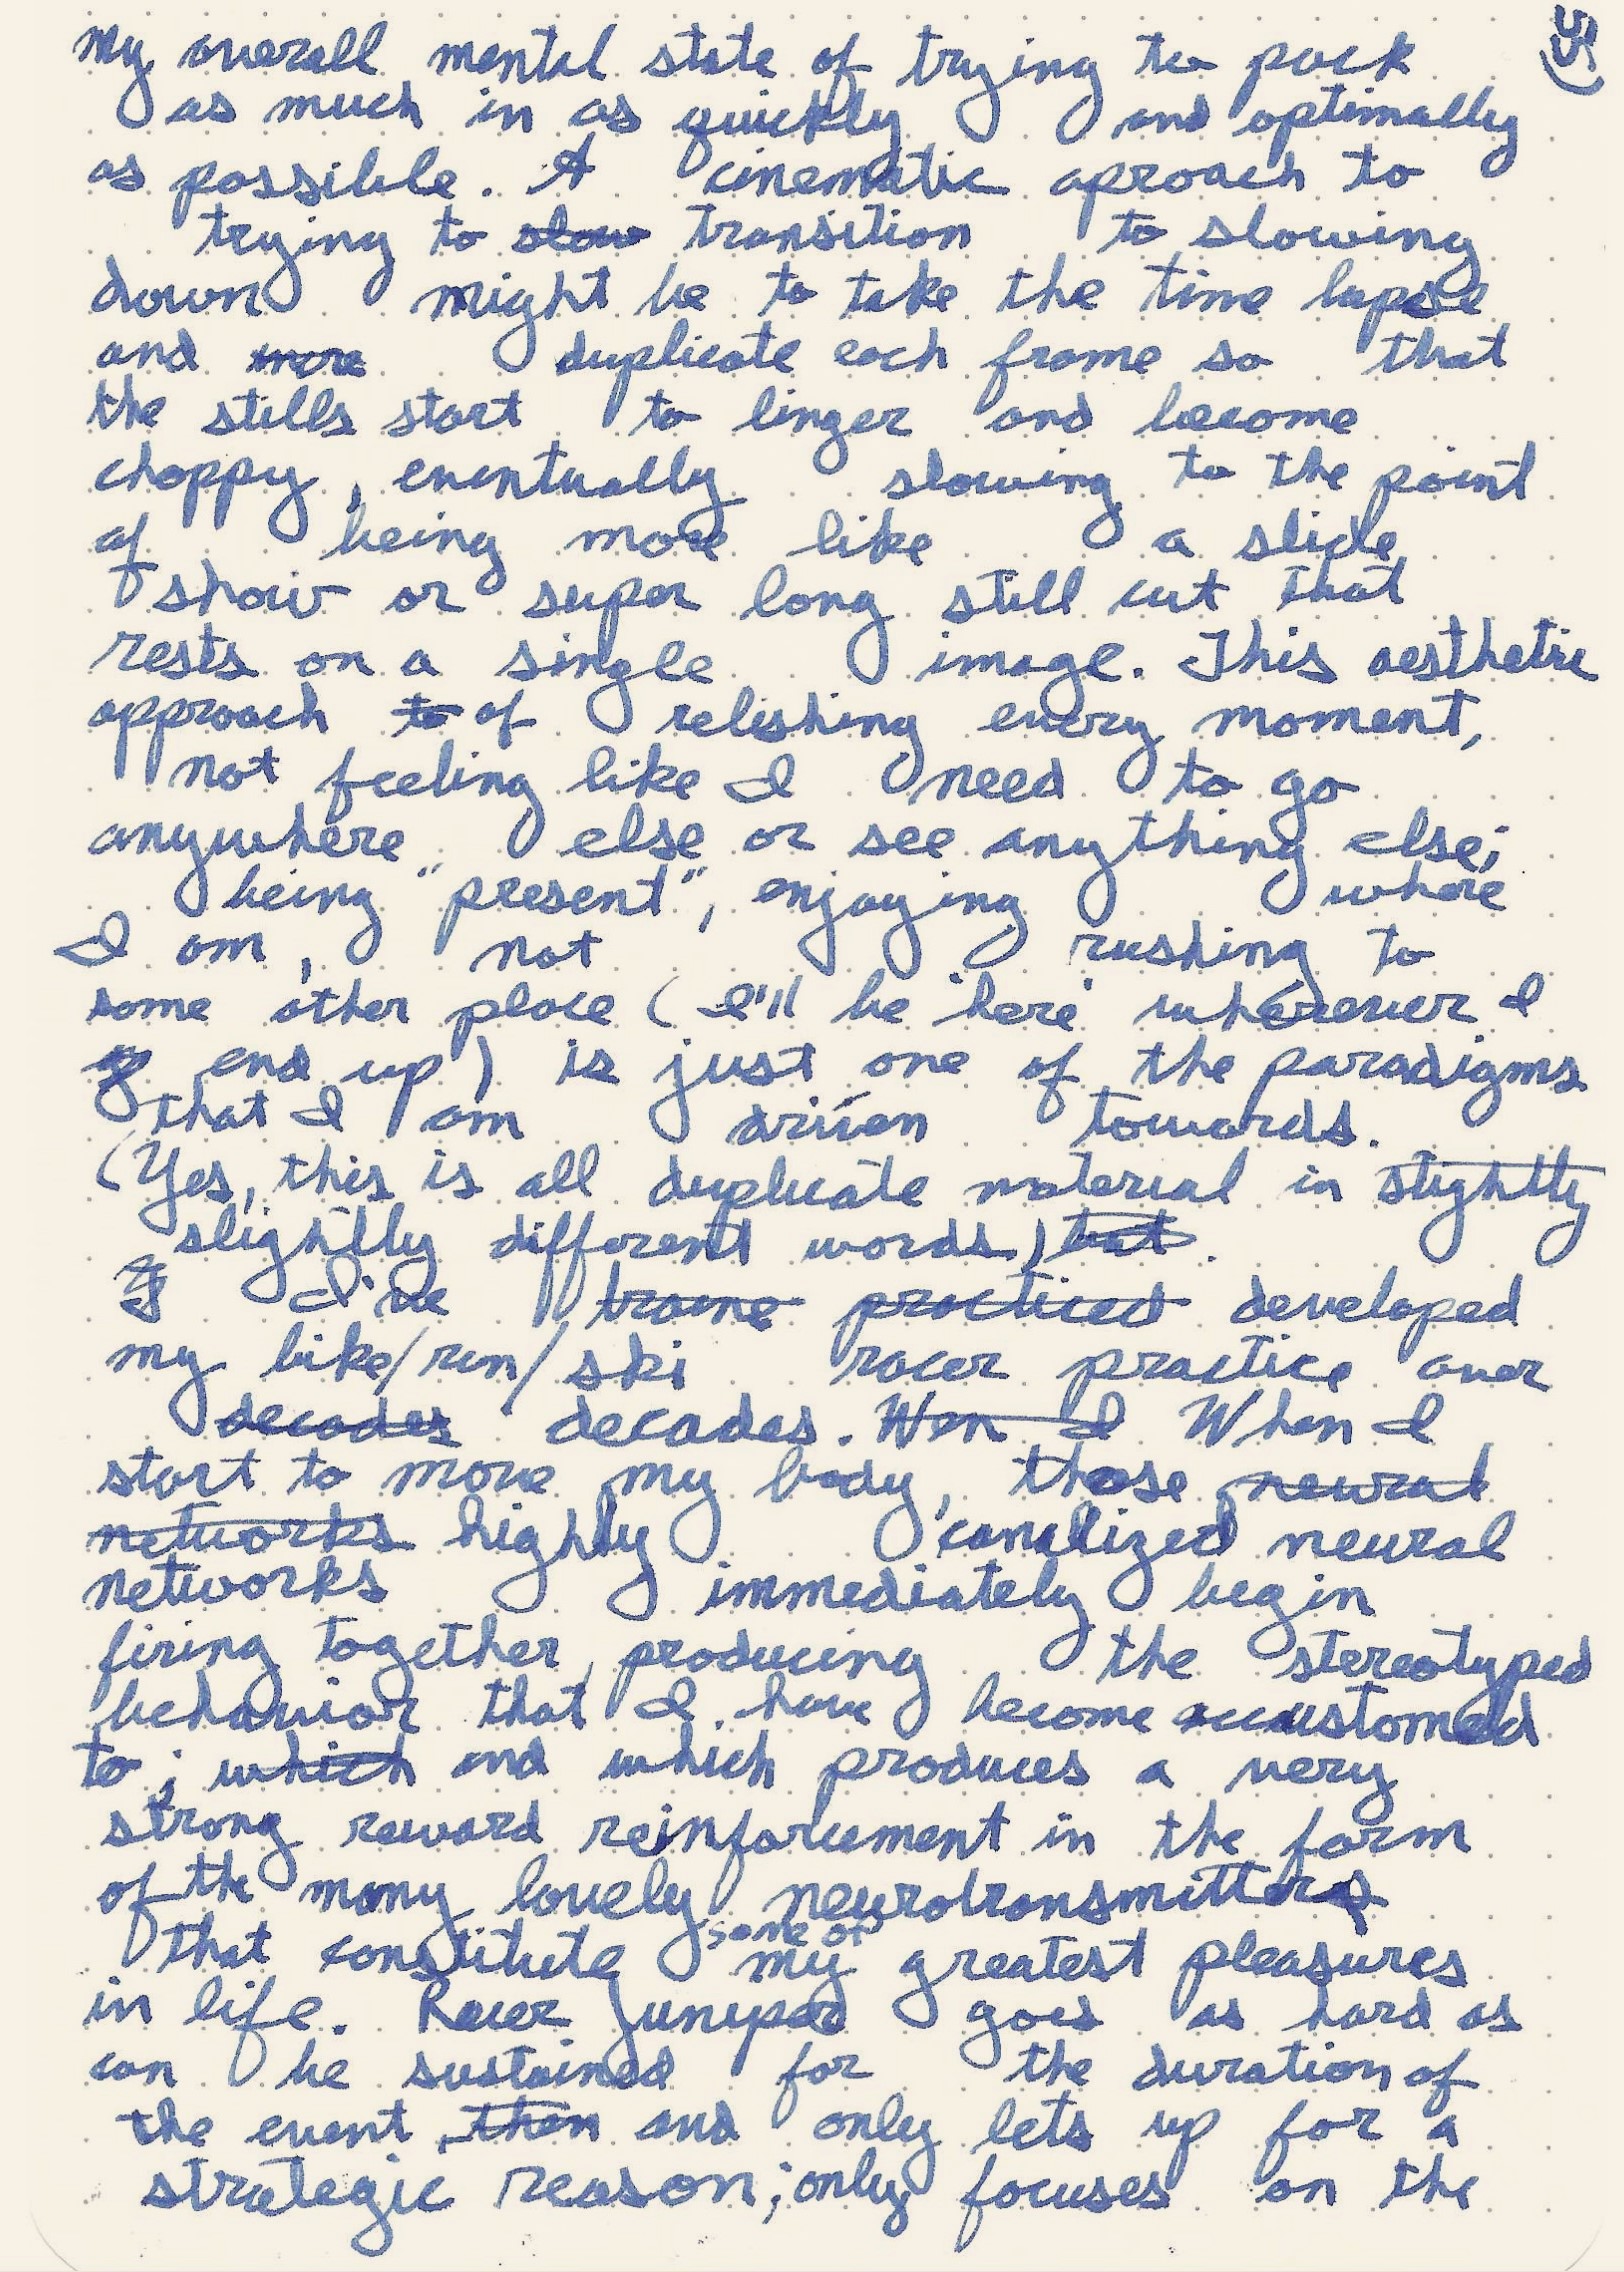 55
my overall mental state of trying to pack
as much in as quickly and optimally
as possible. A cinematic aproach to
trying to slow transition to slowing
down might be to take the time lapse
and more duplicate each frame so that
the stills start to linger and become
choppy, eventually slowing to the point
of being more like a slide
show or super long still cut that
rests on a single image. This aesthetic
approach to of relishing every moment,
not feeling like I need to go
anywhere else or see anything else;
being "present", enjoying where
I am, not rushing to
some other place (I'll be 'here' wherever I
go end up) is just one of the paradigms
that I am driven towards.
(Yes, this is all duplicate material in slightly
slightly different words) but.
I I've traine practiced developed
my bike/run/ski racer practice over
decades decades. Wen I When I
start to move my body, those neural
networks highly canalized neural
networks immediately begin
firing together, producing the stereotyped
behavior that I have become accustomed
to; which and which produces a very
strong reward reinforcement in the form
of the many lovely neurotransmitters
that constitute some of my greatest pleasures
in life. Racer Juniper goes as hard as
can be sustained for the duration of
the event, then and only lets up for a
strategic reason; only focuses on the